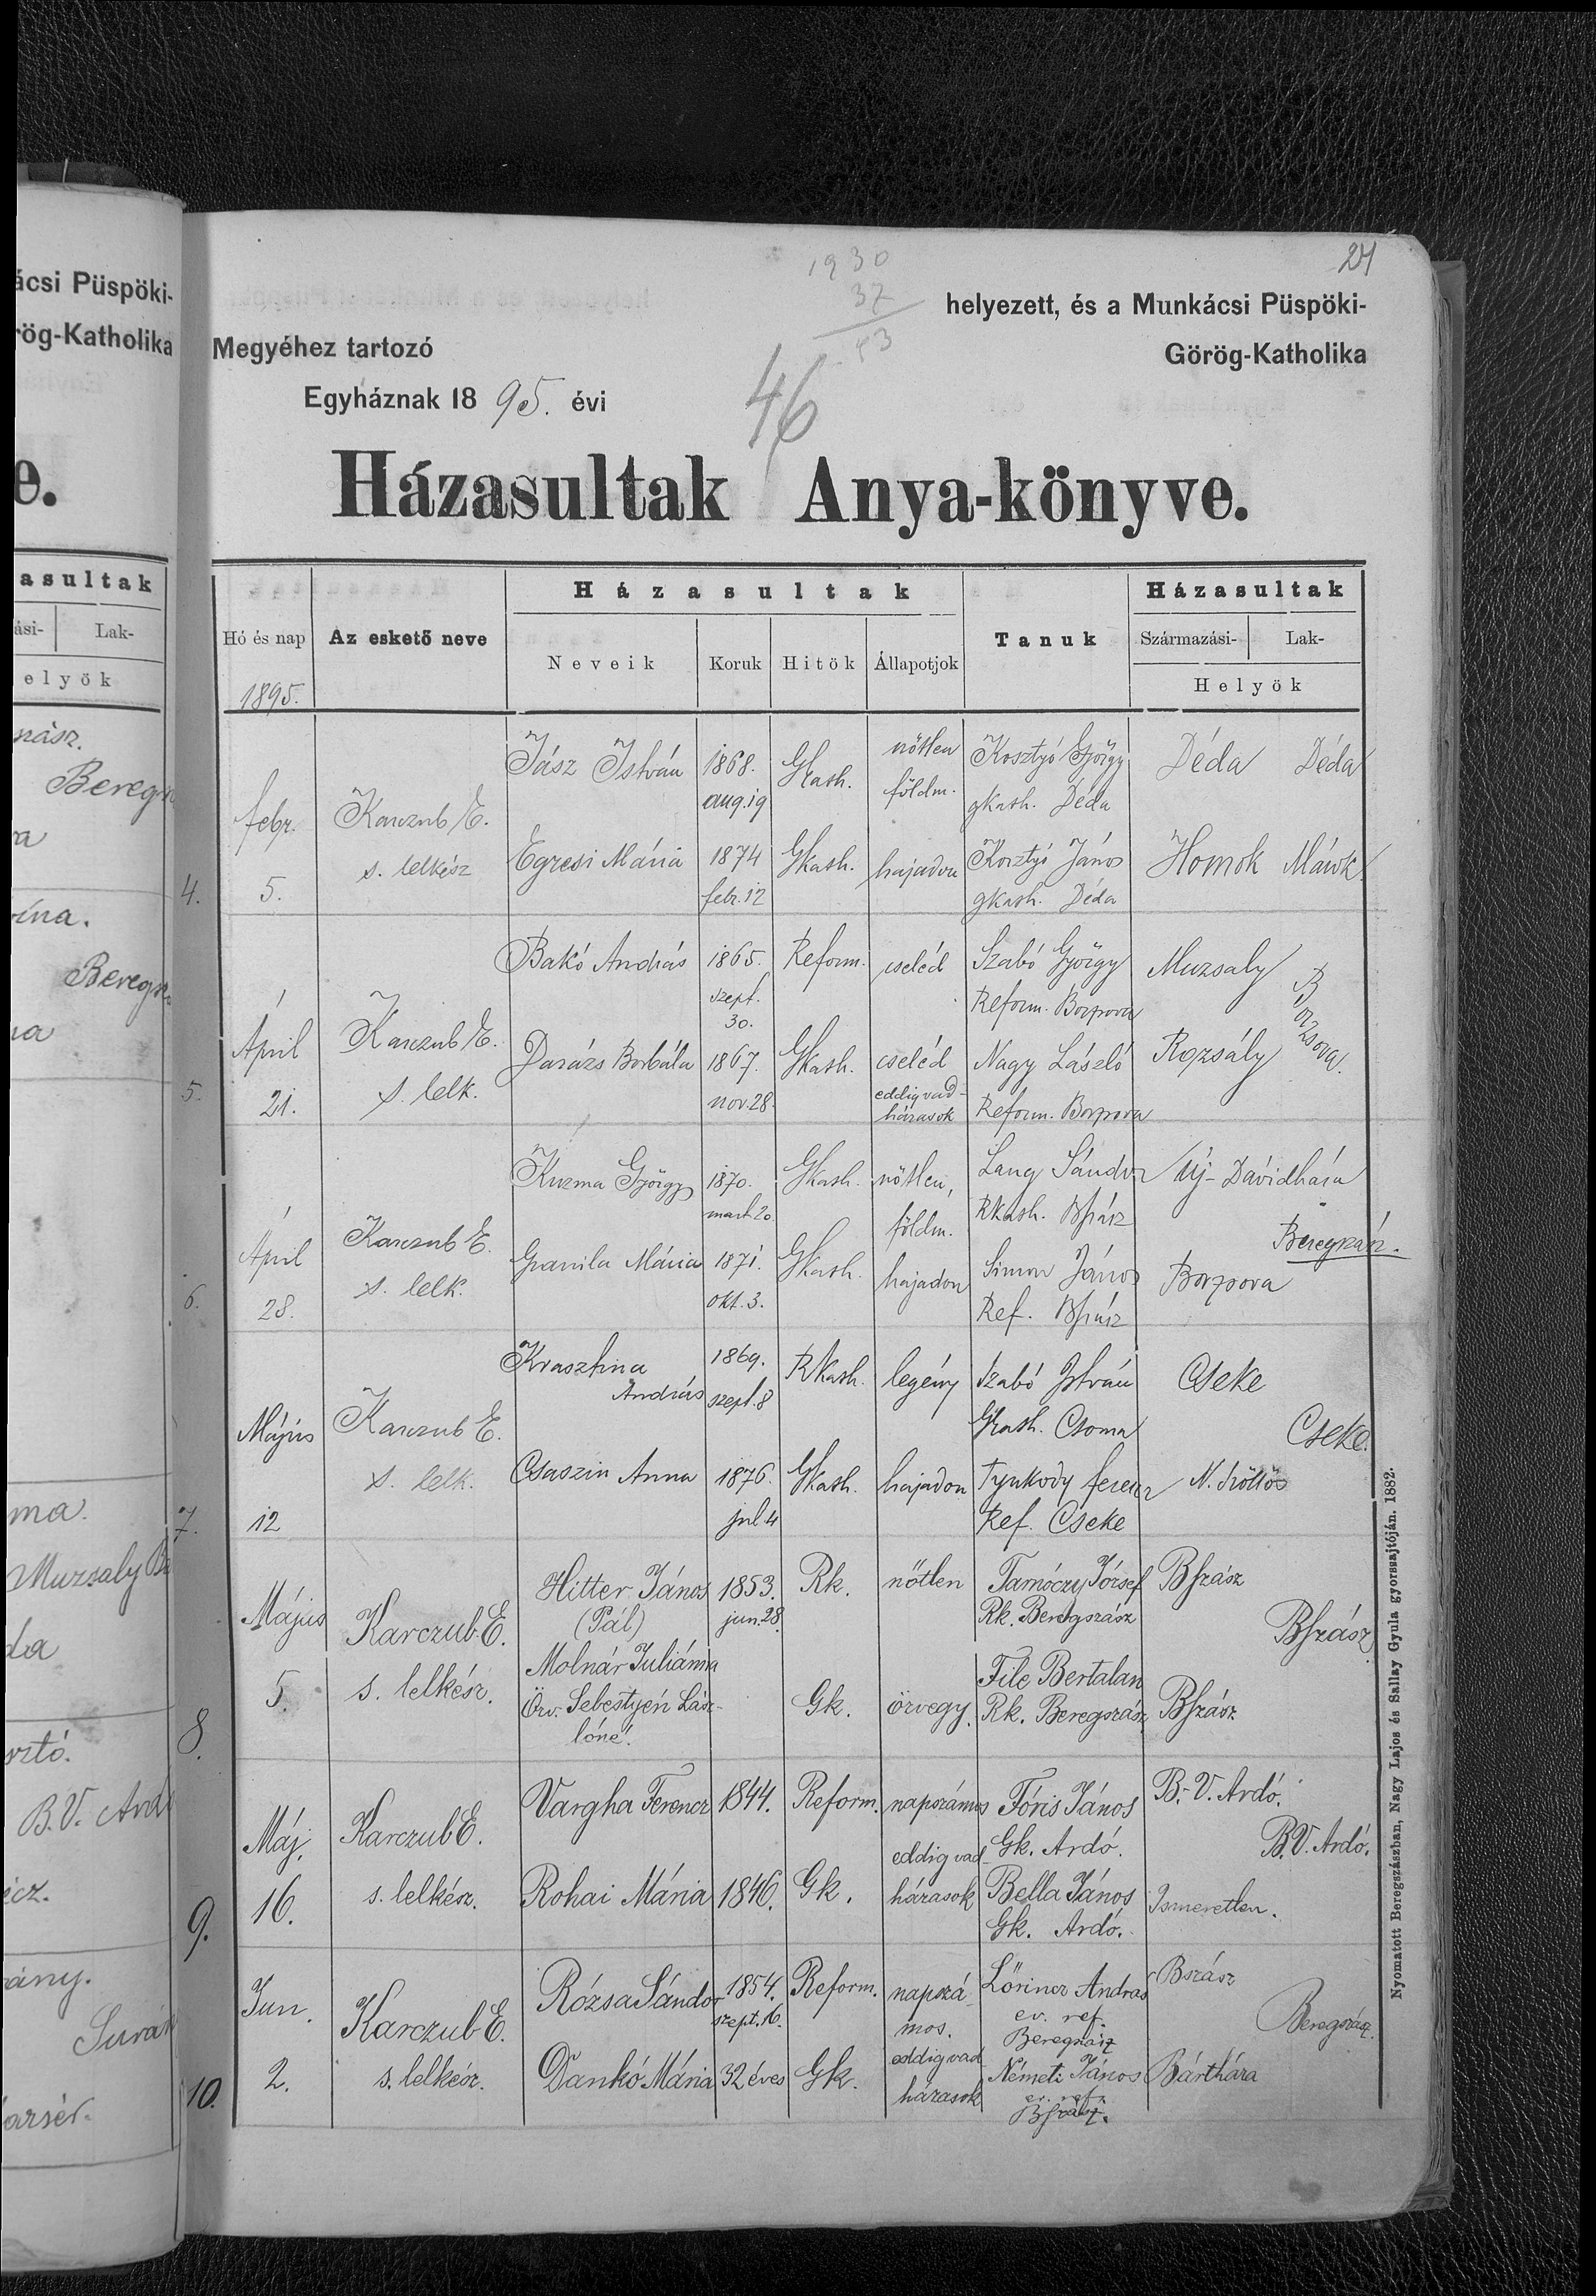 ácsi Püspöki-
rög-Katholika
e.
asultak
ási- Lak-
elyök
Muzsaly
B.V.
24
1930
37
46
helyezett, és a Munkácsi Püspöki-
Megyéhez tartozó Görög-Katholika
Egyháznak 1895. évi
Házasultak Anya-könyve.
Hó és nap
1895.
Az eskető neve
Házasultak
Neveik Koruk Hitök Állapotjok
Tanuk
Házasultak
Származási- Lak-
Helyök
4.
febr.
5.
Karczub E.
s. lelkész
Jász István 1868. Gkath. nőtlen Kosztyó György Déda Déda
aug. 19 földm. gkath. Déda
Egresi Mária 1874 Gkath. hajadon Kosztyó János Homok Márok
febr. 12 gkath. Déda
5.
April
21.
Karczub E.
s. lelk.
Bakó András 1865. Reform. cseléd Szabó György Muzsaly Borzsova.
szept. Reform. Borzsova
30.
Darázs Borbála 1867. Gkath. cseléd Nagy László Rozsály
nov. 28. eddig vad-
házasok Reform. Borzsova
6.
April
28.
Karczub E.
s. lelk.
Kuzma György 1870. Gkath. nőtlen, Lang Sándor Új-Dávidháza
mart. 20. földm. Rkath. Bszász
Beregszász.
Mária 1871. Gkath. hajadon Simon János Borzsova
okt. 3. Ref. Bszász
7.
Május
12
Karczub E.
s. lelk.
Krasztina 1869. Rkath. legény Szabó István Cseke
András szept. 8 Gkath. Csoma
Cseke.
Csaszin Anna 1876. Gkath. hajadon ferencz N. Szőllős
jul. 4 Ref. Cseke
8.
Május
5.
Karczub E.
s. lelkész.
Hitter János 1853. Rk. nőtlen Tamóczy József Bszász
(Pál) jun. 28. Rk. Beregszász
Bszász.
Molnár Juliánna File Bertalan
Özv. Sebestyén Lász- Gk. özvegy. Rk. Beregszász Bszász
lóné.
9.
Máj.
16.
Karczub E.
s. lelkész.
Vargha Ferencz 1844. Reform. napszámos Fóris János B.-V. Ardó.
eddig vad- Gk. Ardó. B.V. Ardó.
Rohai Mária 1846. Gk. házasok Bella János Ismeretlen.
Gk. Ardó.
10.
Jun.
2.
Karczub E.
s. lelkész.
Rózsa Sándor 1854. Reform. napszá- Lőrincz András Bszász
szept. 16. mos. ev. ref.
Beregszász Beregszász.
Dankó Mária 32 éves Gk. eddig vad Németi János Bárthára
házasok ev. ref.
Bszász.
Nyomatott Beregszászban, Nagy Lajos és Sallay Gyula gyorssajtóján. 1882.